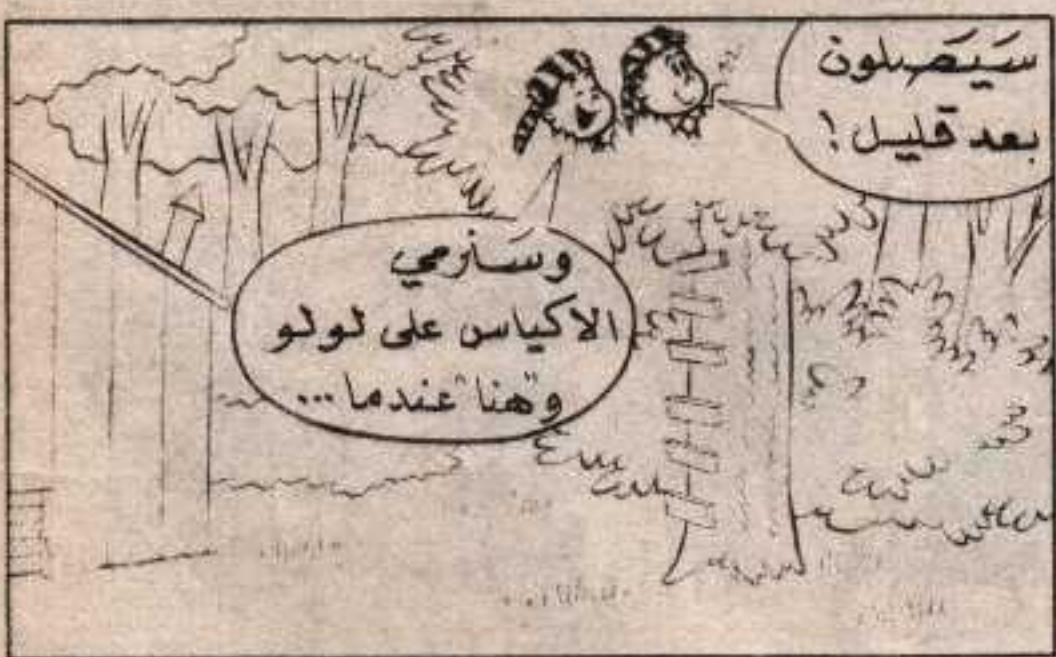 سَيَصِلون
بعد قليل!
وسَنرمي
الاكياس على لولو
و"هنا" عندما...